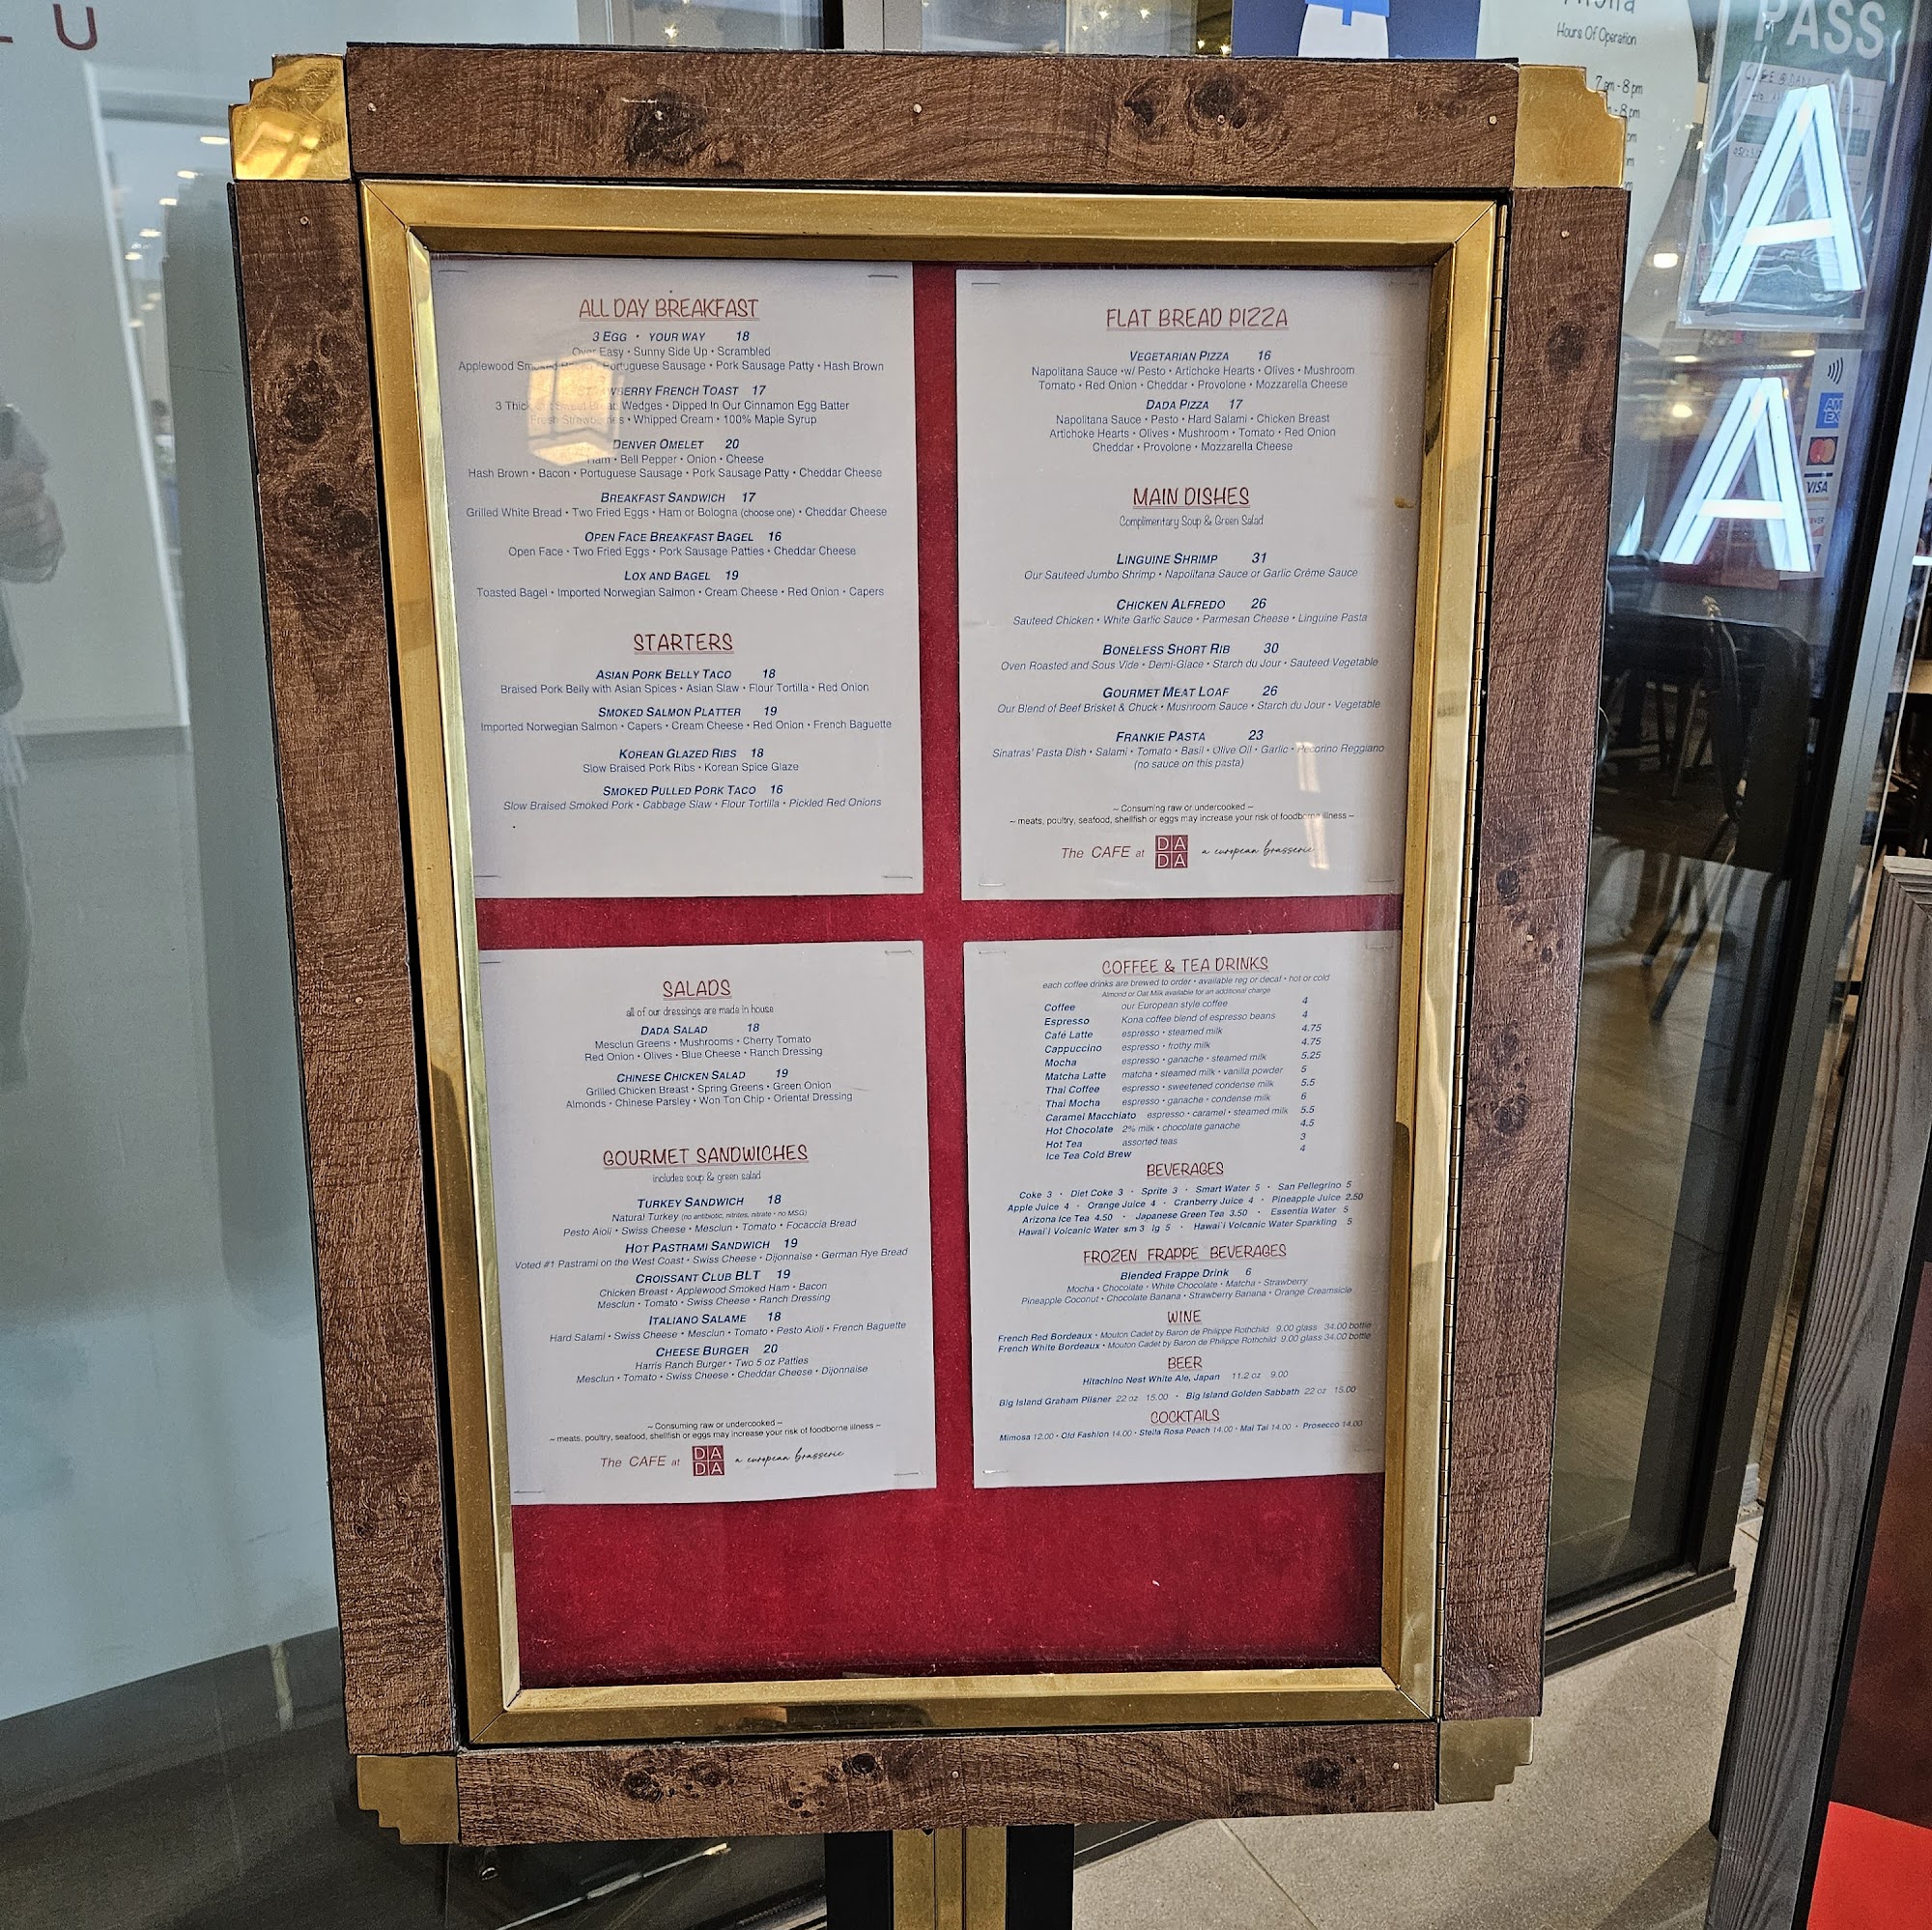 L U
Hours Of Operation
7 am - 8 pm
PASS
A
A
AM
EX
VISA
ALL DAY BREAKFAST
3 EGG • YOUR WAY 18
Over Easy • Sunny Side Up • Scrambled
Applewood Smoked • Portuguese Sausage • Pork Sausage Patty • Hash Brown
STRAWBERRY FRENCH TOAST 17
3 Thick Wedges • Dipped In Our Cinnamon Egg Batter
Fresh Strawberries • Whipped Cream • 100% Maple Syrup
DENVER OMELET 20
Ham • Bell Pepper • Onion • Cheese
Hash Brown • Bacon • Portuguese Sausage • Pork Sausage Patty • Cheddar Cheese
BREAKFAST SANDWICH 17
Grilled White Bread • Two Fried Eggs • Ham or Bologna (choose one) • Cheddar Cheese
OPEN FACE BREAKFAST BAGEL 16
Open Face • Two Fried Eggs • Pork Sausage Patties • Cheddar Cheese
LOX AND BAGEL 19
Toasted Bagel • Imported Norwegian Salmon • Cream Cheese • Red Onion • Capers
STARTERS
ASIAN PORK BELLY TACO 18
Braised Pork Belly with Asian Spices • Asian Slaw • Flour Tortilla • Red Onion
SMOKED SALMON PLATTER 19
Imported Norwegian Salmon • Capers • Cream Cheese • Red Onion • French Baguette
KOREAN GLAZED RIBS 18
Slow Braised Pork Ribs • Korean Spice Glaze
SMOKED PULLED PORK TACO 16
Slow Braised Smoked Pork • Cabbage Slaw • Flour Tortilla • Pickled Red Onions
FLAT BREAD PIZZA
VEGETARIAN PIZZA 16
Napolitana Sauce •w/ Pesto • Artichoke Hearts • Olives • Mushroom
Tomato • Red Onion • Cheddar • Provolone • Mozzarella Cheese
DADA PIZZA 17
Napolitana Sauce • Pesto • Hard Salami • Chicken Breast
Artichoke Hearts • Olives • Mushroom • Tomato • Red Onion
Cheddar • Provolone • Mozzarella Cheese
MAIN DISHES
Complimentary Soup & Green Salad
LINGUINE SHRIMP 31
Our Sauteed Jumbo Shrimp • Napolitana Sauce or Garlic Crème Sauce
CHICKEN ALFREDO 26
Sauteed Chicken • White Garlic Sauce • Parmesan Cheese • Linguine Pasta
BONELESS SHORT RIB 30
Oven Roasted and Sous Vide • Demi-Glace • Starch du Jour • Sauteed Vegetable
GOURMET MEAT LOAF 26
Our Blend of Beef Brisket & Chuck • Mushroom Sauce • Starch du Jour • Vegetable
FRANKIE PASTA 23
Sinatras' Pasta Dish • Salami • Tomato • Basil • Olive Oil • Garlic • Pecorino Reggiano
(no sauce on this pasta)
~ Consuming raw or undercooked ~
~ meats, poultry, seafood, shellfish or eggs may increase your risk of foodborne illness ~
The CAFE at DADA a european brasserie
SALADS
all of our dressings are made in house
DADA SALAD 18
Mesclun Greens • Mushrooms • Cherry Tomato
Red Onion • Olives • Blue Cheese • Ranch Dressing
CHINESE CHICKEN SALAD 19
Grilled Chicken Breast • Spring Greens • Green Onion
Almonds • Chinese Parsley • Won Ton Chip • Oriental Dressing
GOURMET SANDWICHES
includes soup & green salad
TURKEY SANDWICH 18
Natural Turkey (no antibiotic, nitrites, nitrate • no MSG)
Pesto Aioli • Swiss Cheese • Mesclun • Tomato • Focaccia Bread
HOT PASTRAMI SANDWICH 19
Voted #1 Pastrami on the West Coast • Swiss Cheese • Dijonnaise • German Rye Bread
CROISSANT CLUB BLT 19
Chicken Breast • Applewood Smoked Ham • Bacon
Mesclun • Tomato • Swiss Cheese • Ranch Dressing
ITALIANO SALAME 18
Hard Salami • Swiss Cheese • Mesclun • Tomato • Pesto Aioli • French Baguette
CHEESE BURGER 20
Harris Ranch Burger • Two 5 oz Patties
Mesclun • Tomato • Swiss Cheese • Cheddar Cheese • Dijonnaise
~ Consuming raw or undercooked ~
~ meats, poultry, seafood, shellfish or eggs may increase your risk of foodborne illness ~
The CAFE at DADA a european brasserie
COFFEE & TEA DRINKS
each coffee drinks are brewed to order • available reg or decaf • hot or cold
Almond or Oat Milk available for an additional charge
Coffee our European style coffee 4
Espresso Kona coffee blend of espresso beans 4
Café Latte espresso • steamed milk 4.75
Cappuccino espresso • frothy milk 4.75
Mocha espresso • ganache • steamed milk 5.25
Matcha Latte matcha • steamed milk • vanilla powder 5
Thai Coffee espresso • sweetened condense milk 5.5
Thai Mocha espresso • ganache • condense milk 6
Caramel Macchiato espresso • caramel • steamed milk 5.5
Hot Chocolate 2% milk • chocolate ganache 4.5
Hot Tea assorted teas 3
Ice Tea Cold Brew 4
BEVERAGES
Coke 3 • Diet Coke 3 • Sprite 3 • Smart Water 5 • San Pellegrino 5
Apple Juice 4 • Orange Juice 4 • Cranberry Juice 4 • Pineapple Juice 2.50
Arizona Ice Tea 4.50 • Japanese Green Tea 3.50 • Essentia Water 5
Hawai`i Volcanic Water sm 3 lg 5 • Hawai`i Volcanic Water Sparkling 5
FROZEN FRAPPE BEVERAGES
Blended Frappe Drink 6
Mocha • Chocolate • White Chocolate • Matcha • Strawberry
Pineapple Coconut • Chocolate Banana • Strawberry Banana • Orange Creamsicle
WINE
French Red Bordeaux • Mouton Cadet by Baron de Philippe Rothchild 9.00 glass 34.00 bottle
French White Bordeaux • Mouton Cadet by Baron de Philippe Rothchild 9.00 glass 34.00 bottle
BEER
Hitachino Nest White Ale, Japan 11.2 oz 9.00
Big Island Graham Pilsner 22 oz 15.00 • Big Island Golden Sabbath 22 oz 15.00
COCKTAILS
Mimosa 12.00 • Old Fashion 14.00 • Stella Rosa Peach 14.00 • Mai Tai 14.00 • Prosecco 14.00